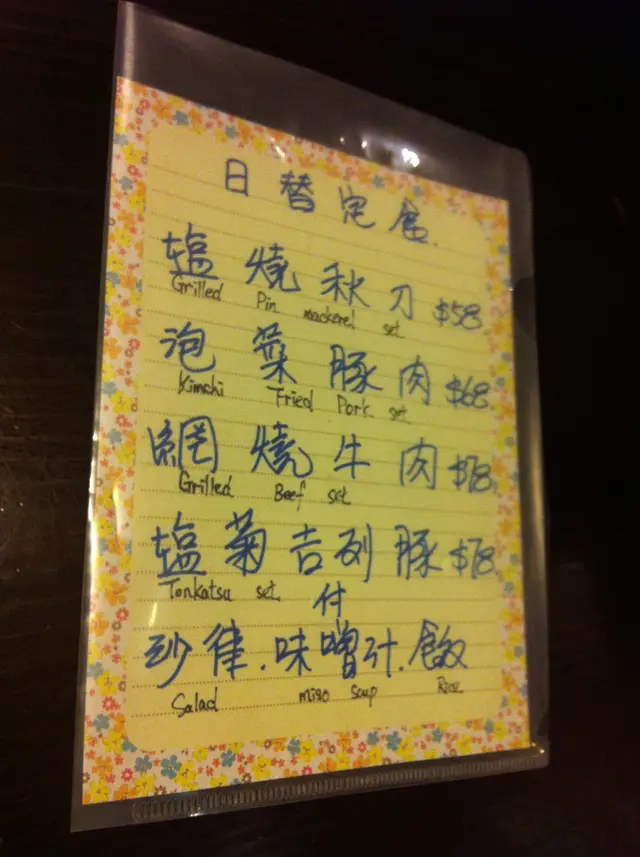 日替定食
塩燒秋刀 $58
Grilled Pin mackerel set
泡菜豚肉 $68
Kimchi Fried Pork set
網燒牛肉 $78
Grilled Beef set
塩菊吉列豚 $78
Tonkatsu set
付
沙律.味噌汁.飯
Salad miso soup Rice